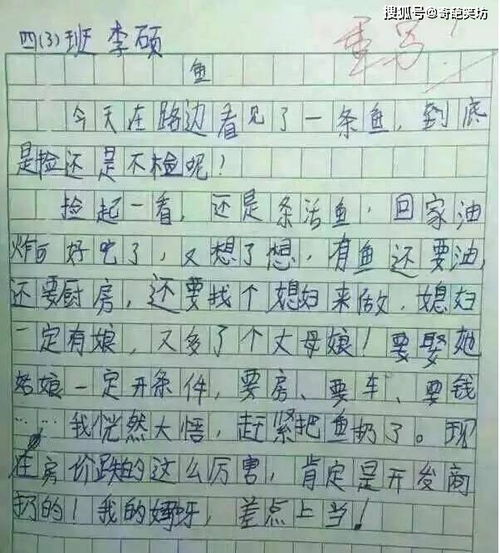 搜狐号@奇葩笑坊
四(3)班 李硕
重写!
鱼
今天在路边看见了一条鱼，到底
是捡还是不检呢！
捡起一看，还是条活鱼，回家油
炸可好吃了，又想了想，有鱼还要油,
还要厨房，还要找个媳妇来做，媳妇
一定有娘，又多了个丈母娘！要娶她
姑娘一定开条件，要房、要车、要钱
……我恍然大悟，赶紧把鱼扔了。现
在房价跌的这么厉害，肯定是开发商
扔的！我的妈呀，差点上当！